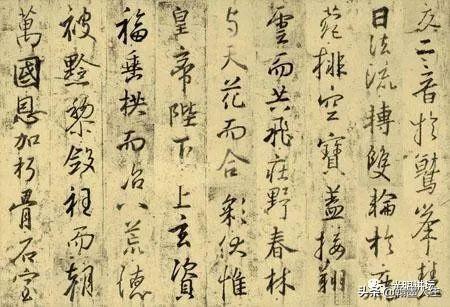 交二音於鷲峯慧
日法流轉雙輪於鹿
菀排空寶蓋接翔
雲而共飛莊野春林
与天花而合彩伏惟
皇帝陛下上玄資
福垂拱而治八荒德
被黔黎斂衽而朝
萬國恩加朽骨石室
头条